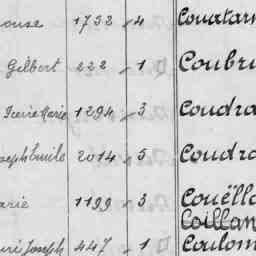 ouse 1732 4 Courtar
Gilbert 222 1 Coubr
Pierre Marie 1294 3 Coudra
oseph Emile 2014 5 Coudra
arie 1199 3 Couëlla
Coillan
uri Joseph 447 1 Coulom